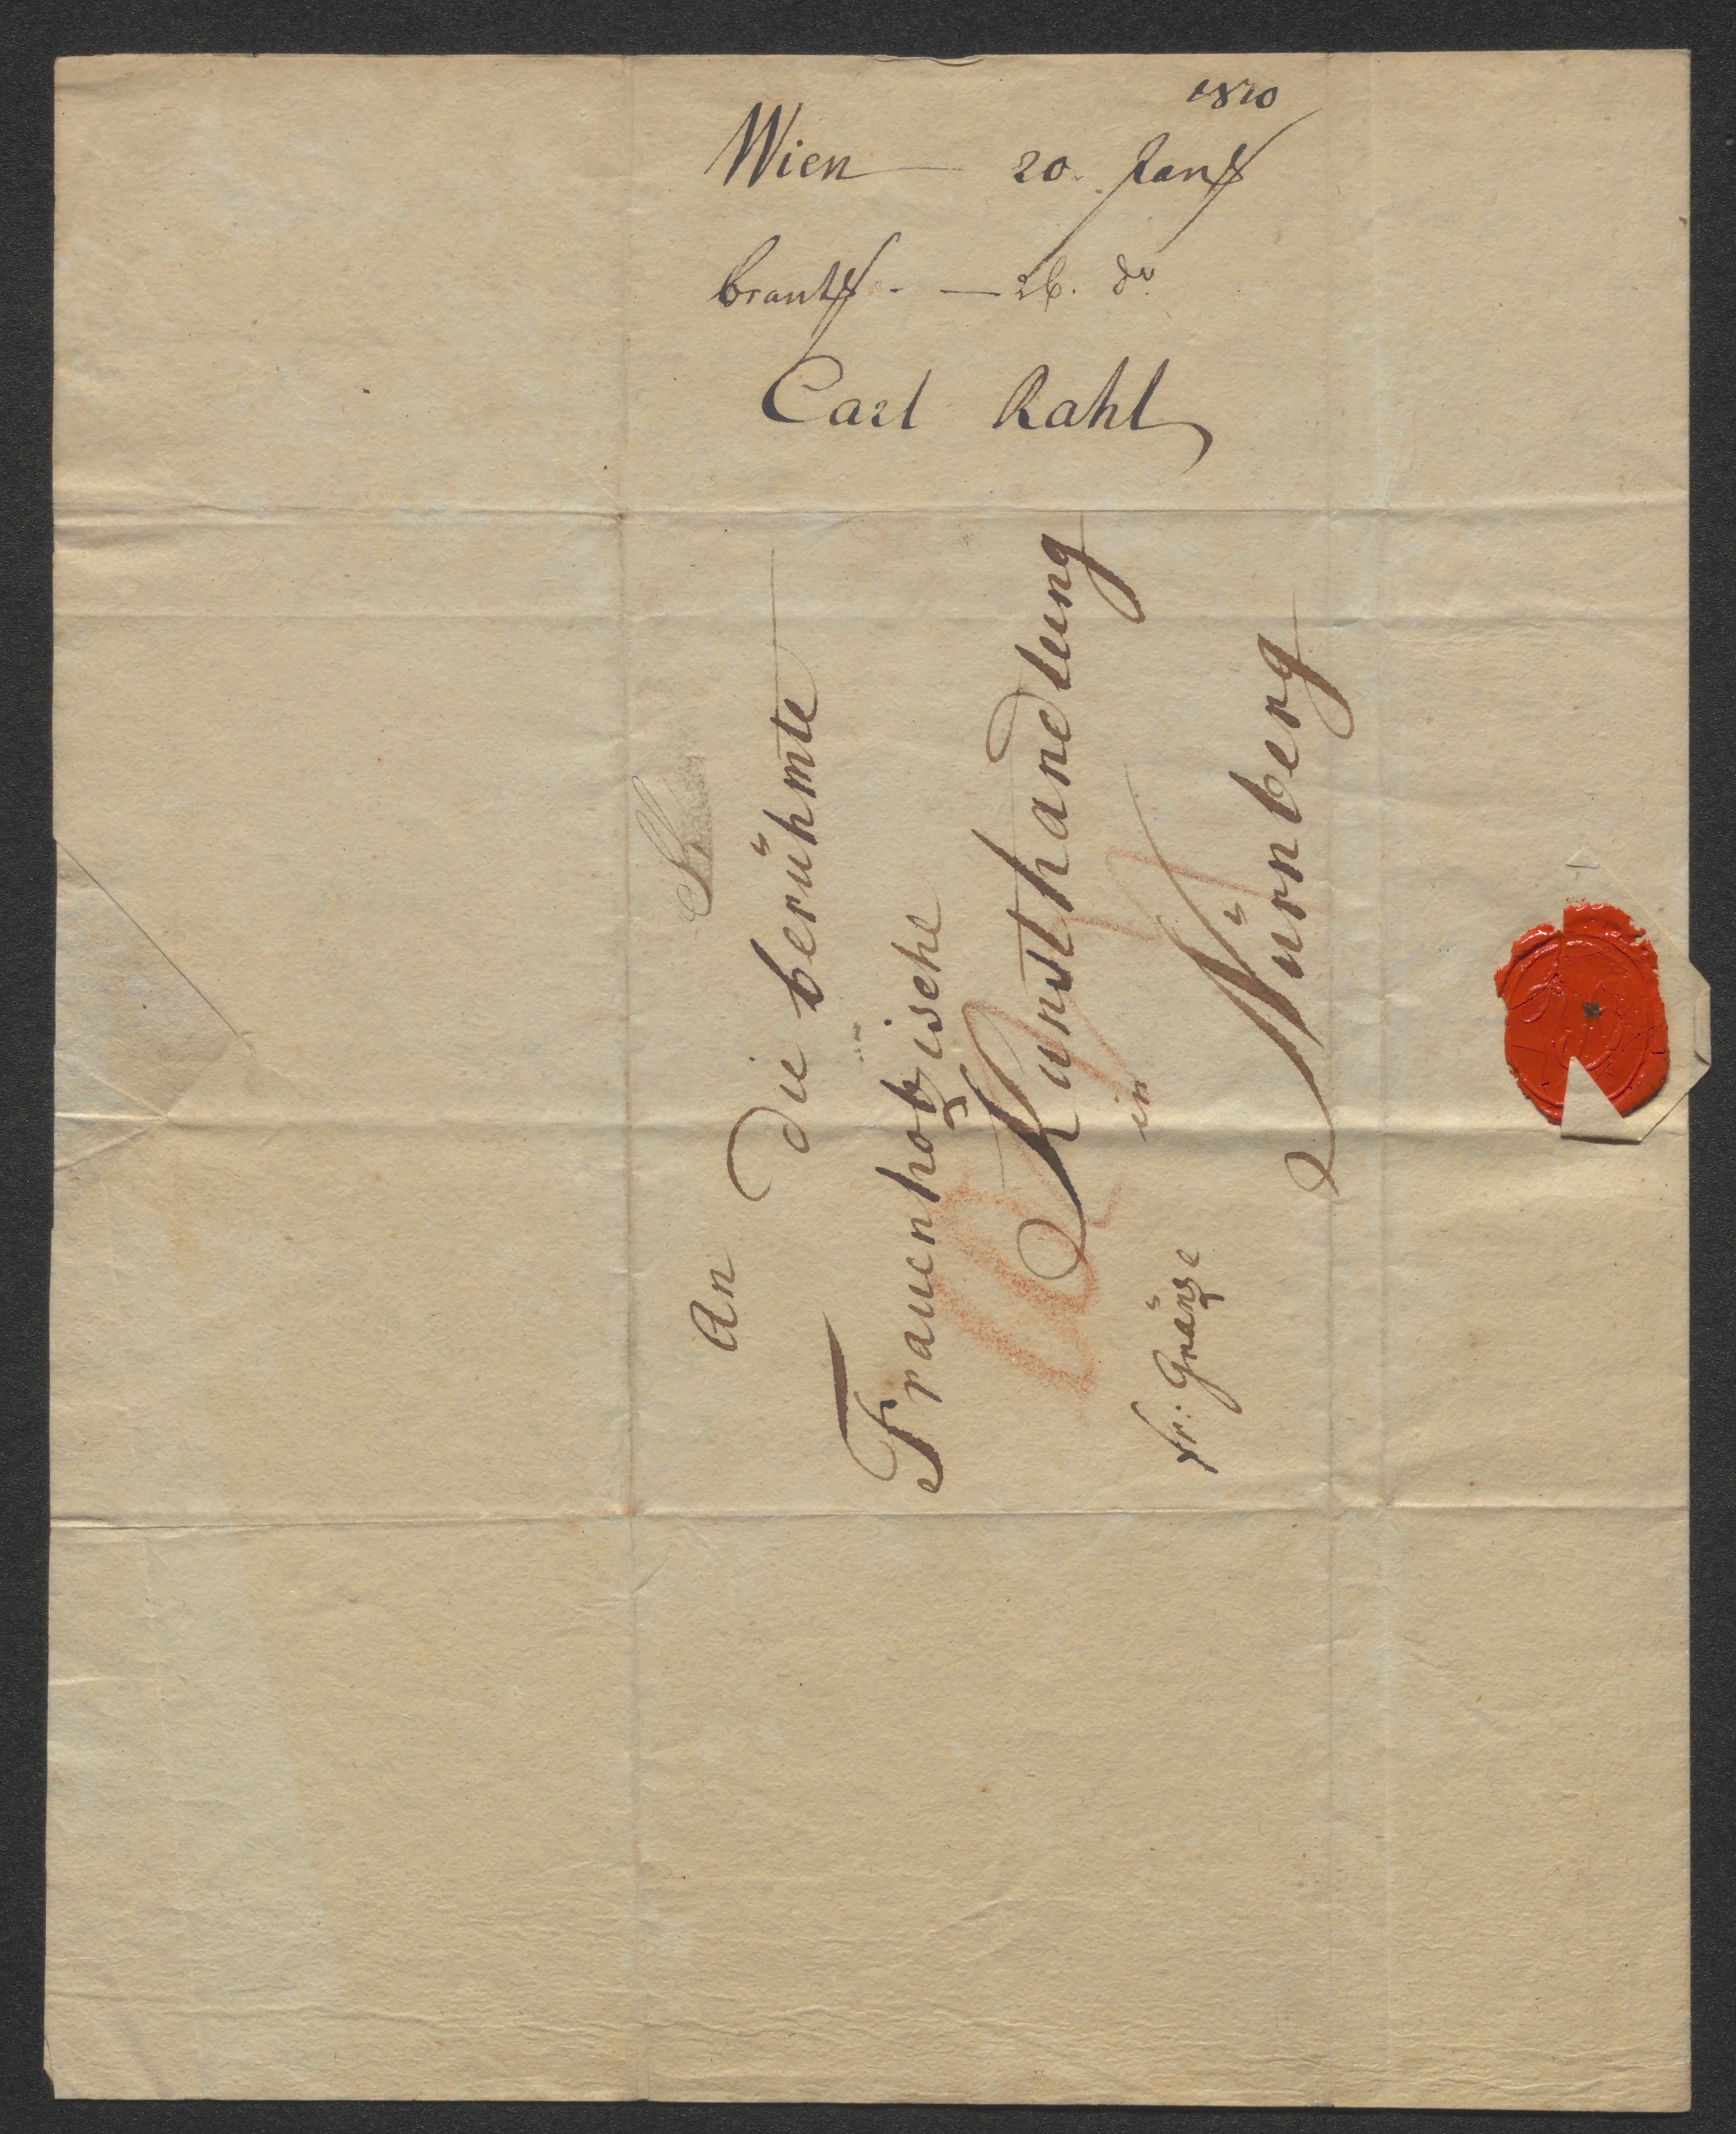 1820
Wien — 20. Jan
beantw. — 26. do
Carl Rahl
An
die berühmte
Frauenholzische
Kunsthandlung
in
Nürnberg
fr: Gränze